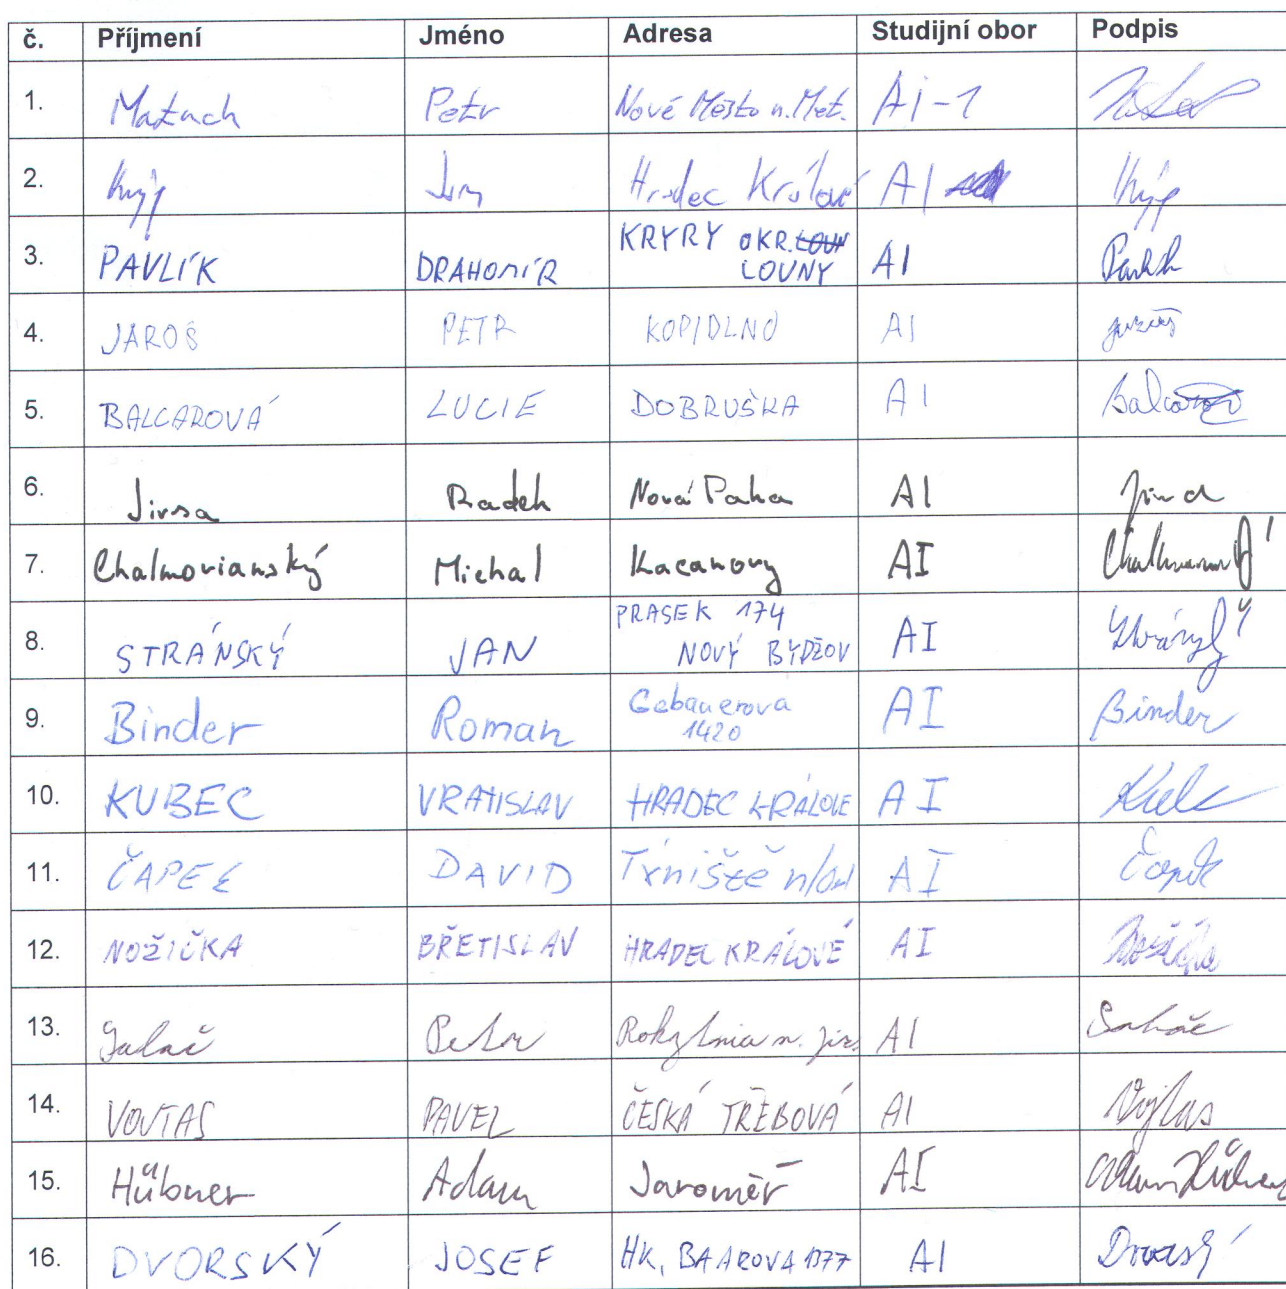 č. Příjmení Jméno Adresa Studijní obor Podpis
1. Petr Nové Město n. Met. AI-1
2. Hradec Králové AI
3. PAVLÍK DRAHOMÍR KRYRY OKR.
LOUNY AI
4. JAROŠ PETR KOPIDLNO AI
5. BALCAROVÁ LUCIE DOBRUŠKA AI
6. Jirsa Radek Nová Paka AI
7. Chalmovianský Michal Kacanovy AI
8. STRÁNSKÝ JAN PRASEK 174
NOVÝ BYDŽOV AI
9. Binder Roman Gebauerova
1420 AI Binder
10. KUBEC VRATISLAV HRADEC KRÁLOVÉ AI
11. ČAPEK DAVID Týniště n/Orl AI
12. NOŽIČKA BŘETISLAV HRADEC KRÁLOVÉ AI
13. Petr Rokytnice n. Jiz. AI
14. VOJTAS PAVEL ČESKÁ TŘEBOVÁ AI Vojtas
15. Hübner Adam Jaroměř AI
16. DVORSKÝ JOSEF HK, BAAROVA 1377 AI